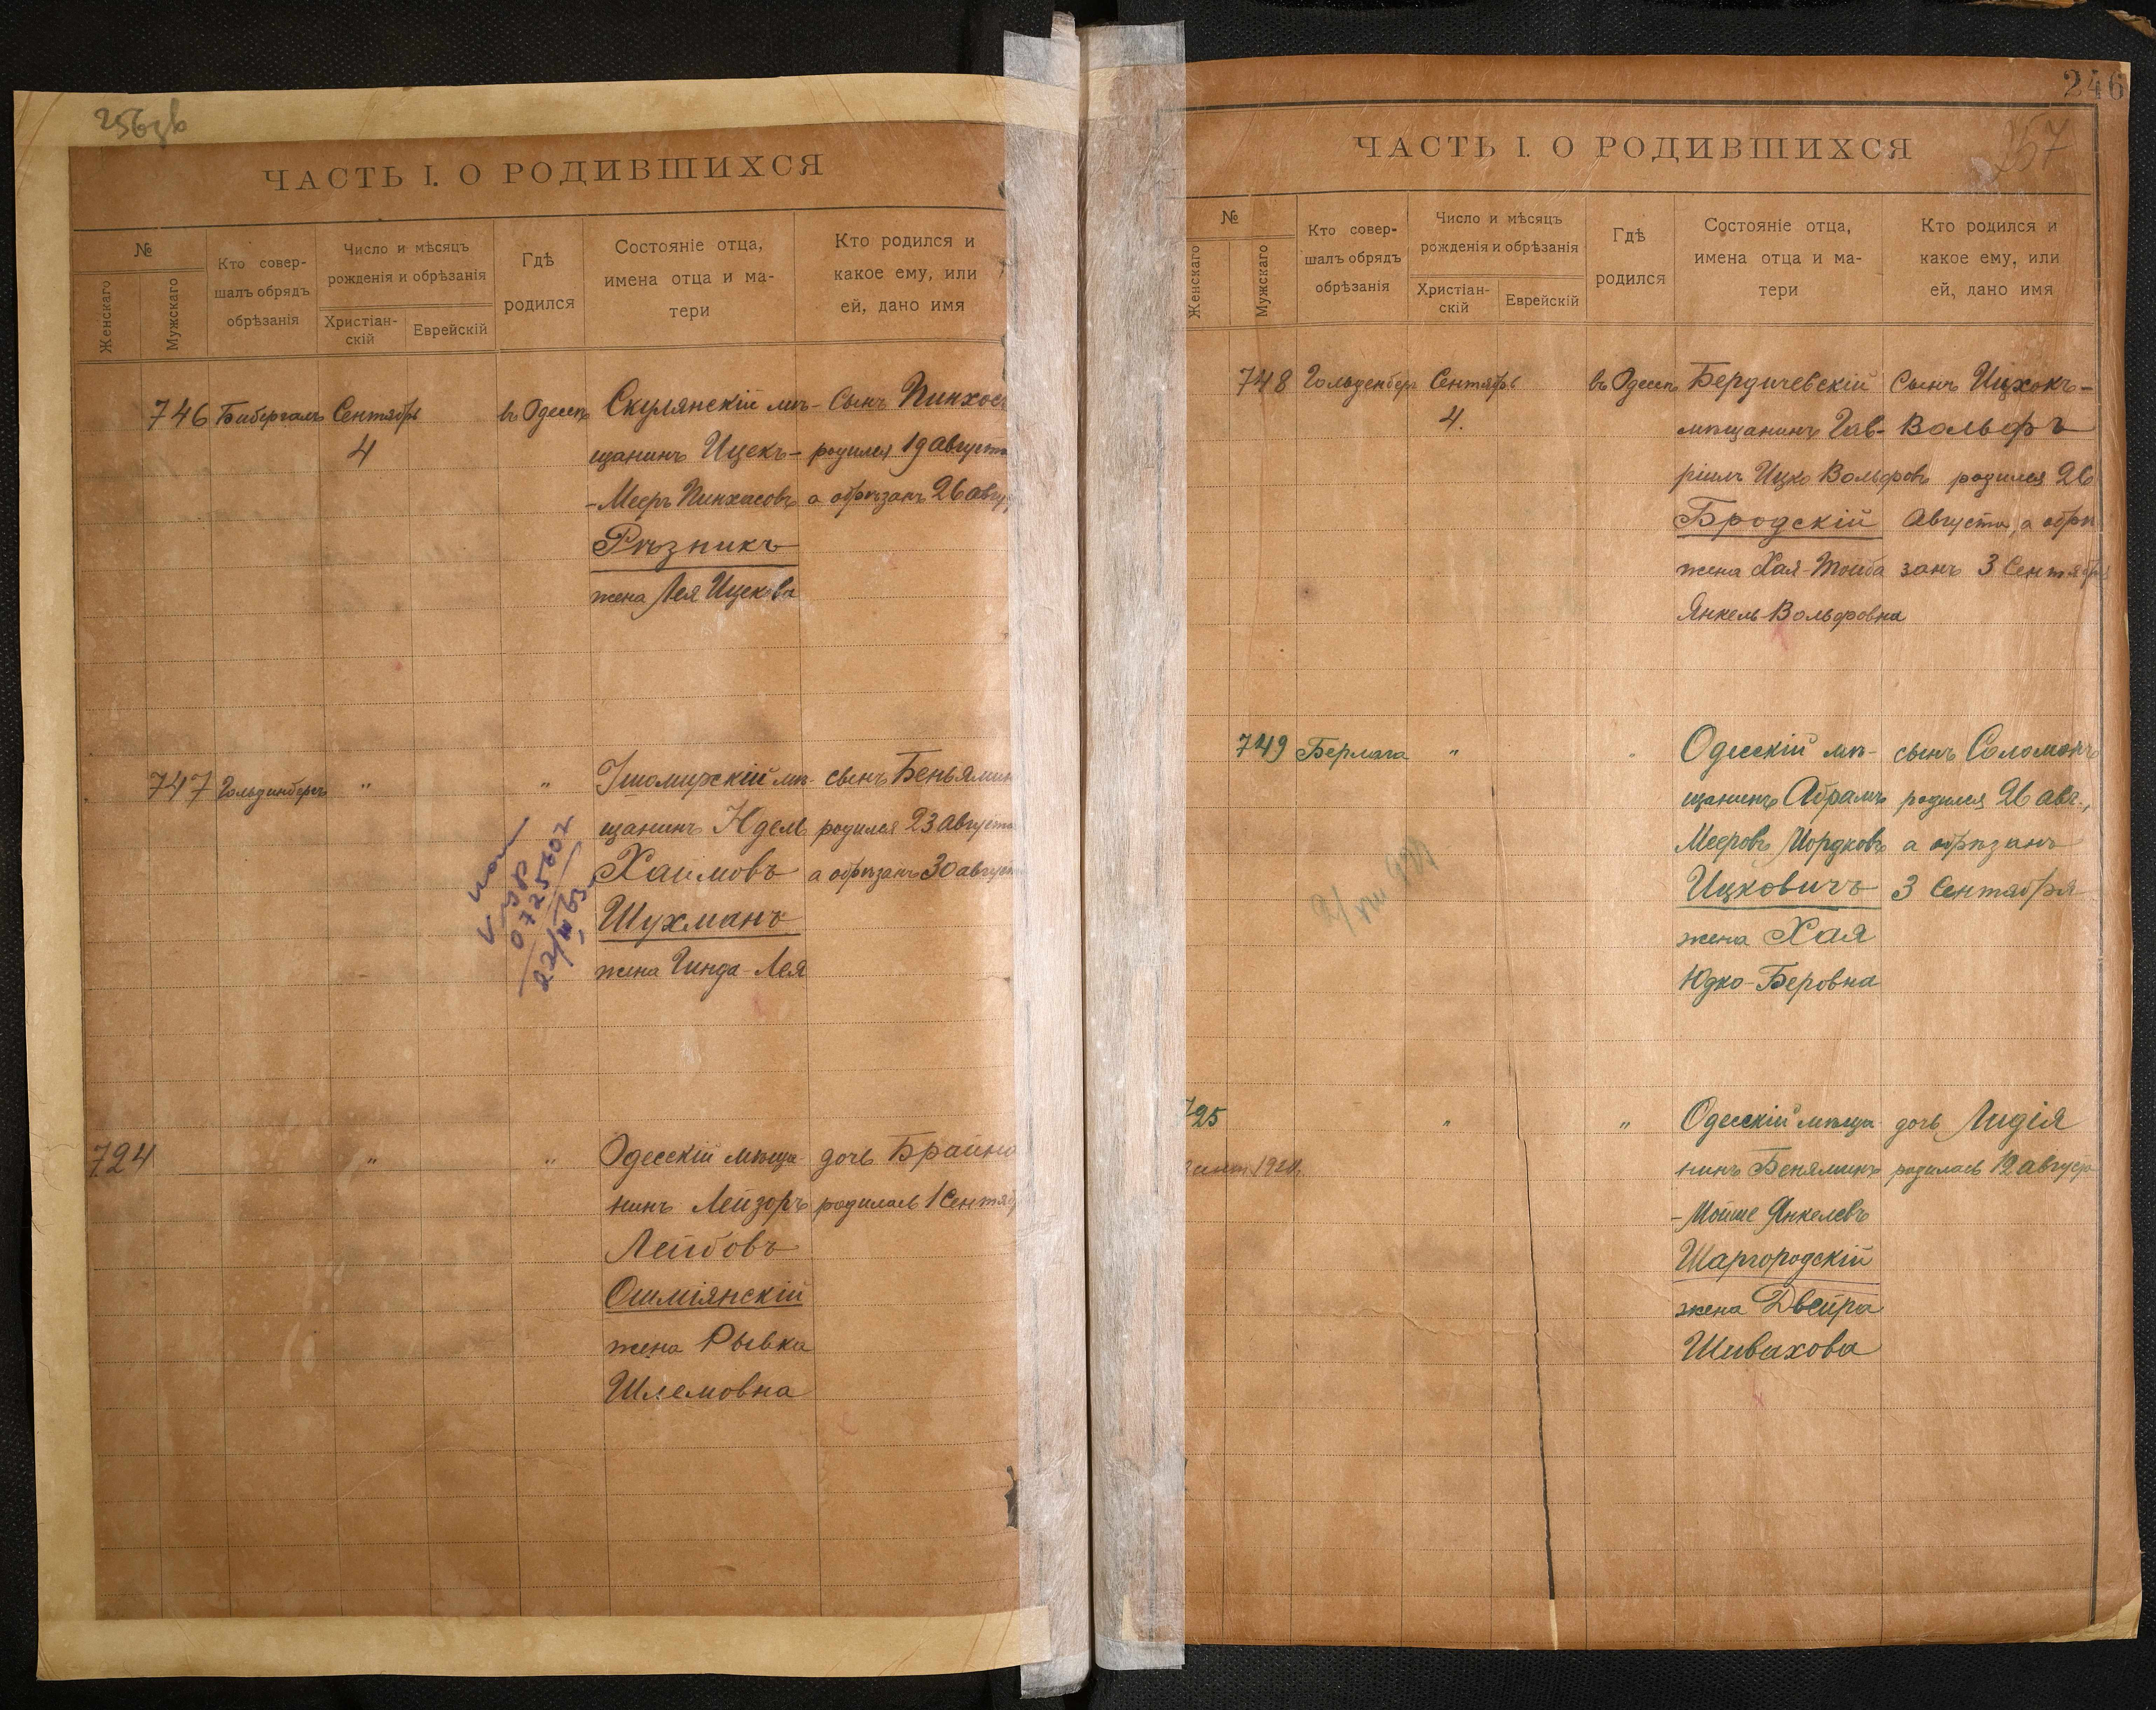 256зв
ЧАСТЬ I. О РОДИВШИХСЯ
№
Женскаго
Мужскаго
Кто совер-
шалъ обрядъ
обрѣзанія
Число и мѣсяцъ
рожденія и обрѣзанія
Христіан-
скій
Еврейскій
Гдѣ
родился
Состояніе отца,
имена отца и ма-
тери
Кто родился и
какое ему, или
ей, дано имя
746 Бибергаль Сентября
4
въ Одессѣ
Скулянскій мѣ-
щанинъ Ицекъ-
-Мееръ Пинхасовъ
Рѣзникъ
жена Лея Ицекова
Сынъ Пинхос
родился 19 августа
а обрѣзанъ 26 авгу
747 Гольденбергъ " "
Житомирскій мѣ-
щанинъ Идель
Хаимовъ
Шухманъ
жена Гинда-Лея
сынъ Беньямин
родился 23 августа
а обрѣзанъ 30 август
0725607
22/III 63
724 " "
Одесскій мѣща-
нинъ Лейзоръ
Лейбовъ
Ошміянскій
жена Рывка
Шлемовна
дочь Брайна
родилась 1 Сентяб
246
257
ЧАСТЬ I. О РОДИВШИХСЯ
№
Женскаго
Мужскаго
Кто совер-
шалъ обрядъ
обрѣзанія
Число и мѣсяцъ
рожденія и обрѣзанія
Христіан-
скій
Еврейскій
Гдѣ
родился
Состояніе отца,
имена отца и ма-
тери
Кто родился и
какое ему, или
ей, дано имя
748 Гольденберг Сентября
4.
въ Одессѣ
Бердичевскій
мѣщанинъ Гав-
ріилъ Ицко Вольфовъ
Бродскій
жена Хая-Тойба
Янкель-Вольфовна
Сынъ Ицхокъ-
Вольфъ
родился 26
Августа, а обрѣ
занъ 3 Сентября
749 Берлага " "
Одесскій мѣ-
щанинъ Абрамъ
Мееровъ Мордковъ
Ицковичъ
жена Хая
Юдко-Беровна
сынъ Соломонъ
родился 26 авг.,
а обрѣзанъ
3 Сентября
725 " "
Одесскій мѣща-
нинъ Беняминъ
-Мойше Янкелевъ
Шаргородскій
жена Двейра
Шивахова
дочь Лидія
родилась 12 августа